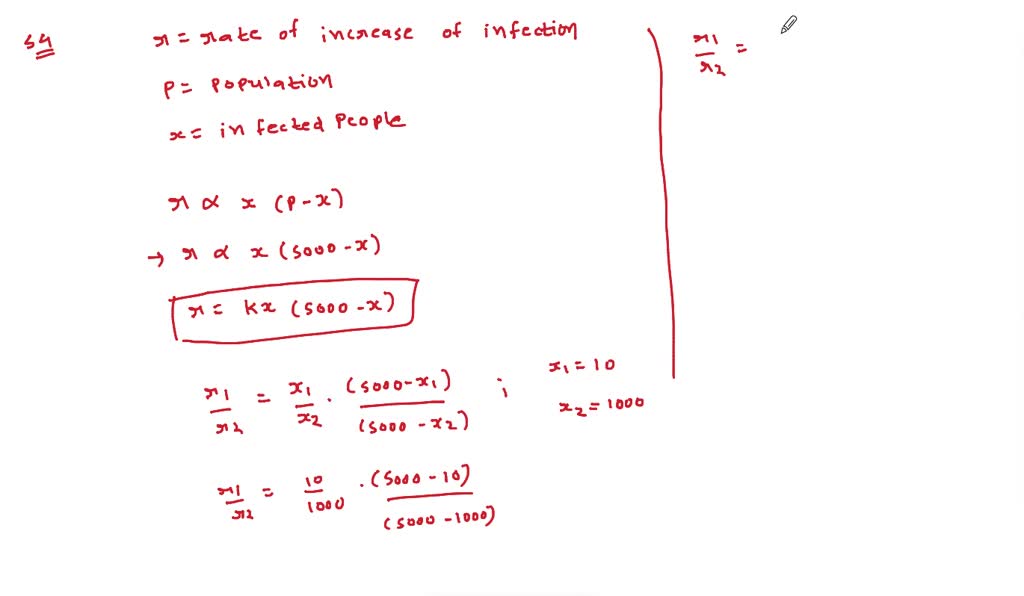 54
r = rate of increase of infection
P = Population
x = infected People
r ∝ x (P-x)
→ r ∝ x (5000-x)
r = Kx (5000-x)
r1/r2 = x1/x2 . (5000-x1)/(5000-x2) ; x1 = 10
x2 = 1000
r1/r2 = 10/1000 . (5000-10)/(5000-1000)
r1/r2 =